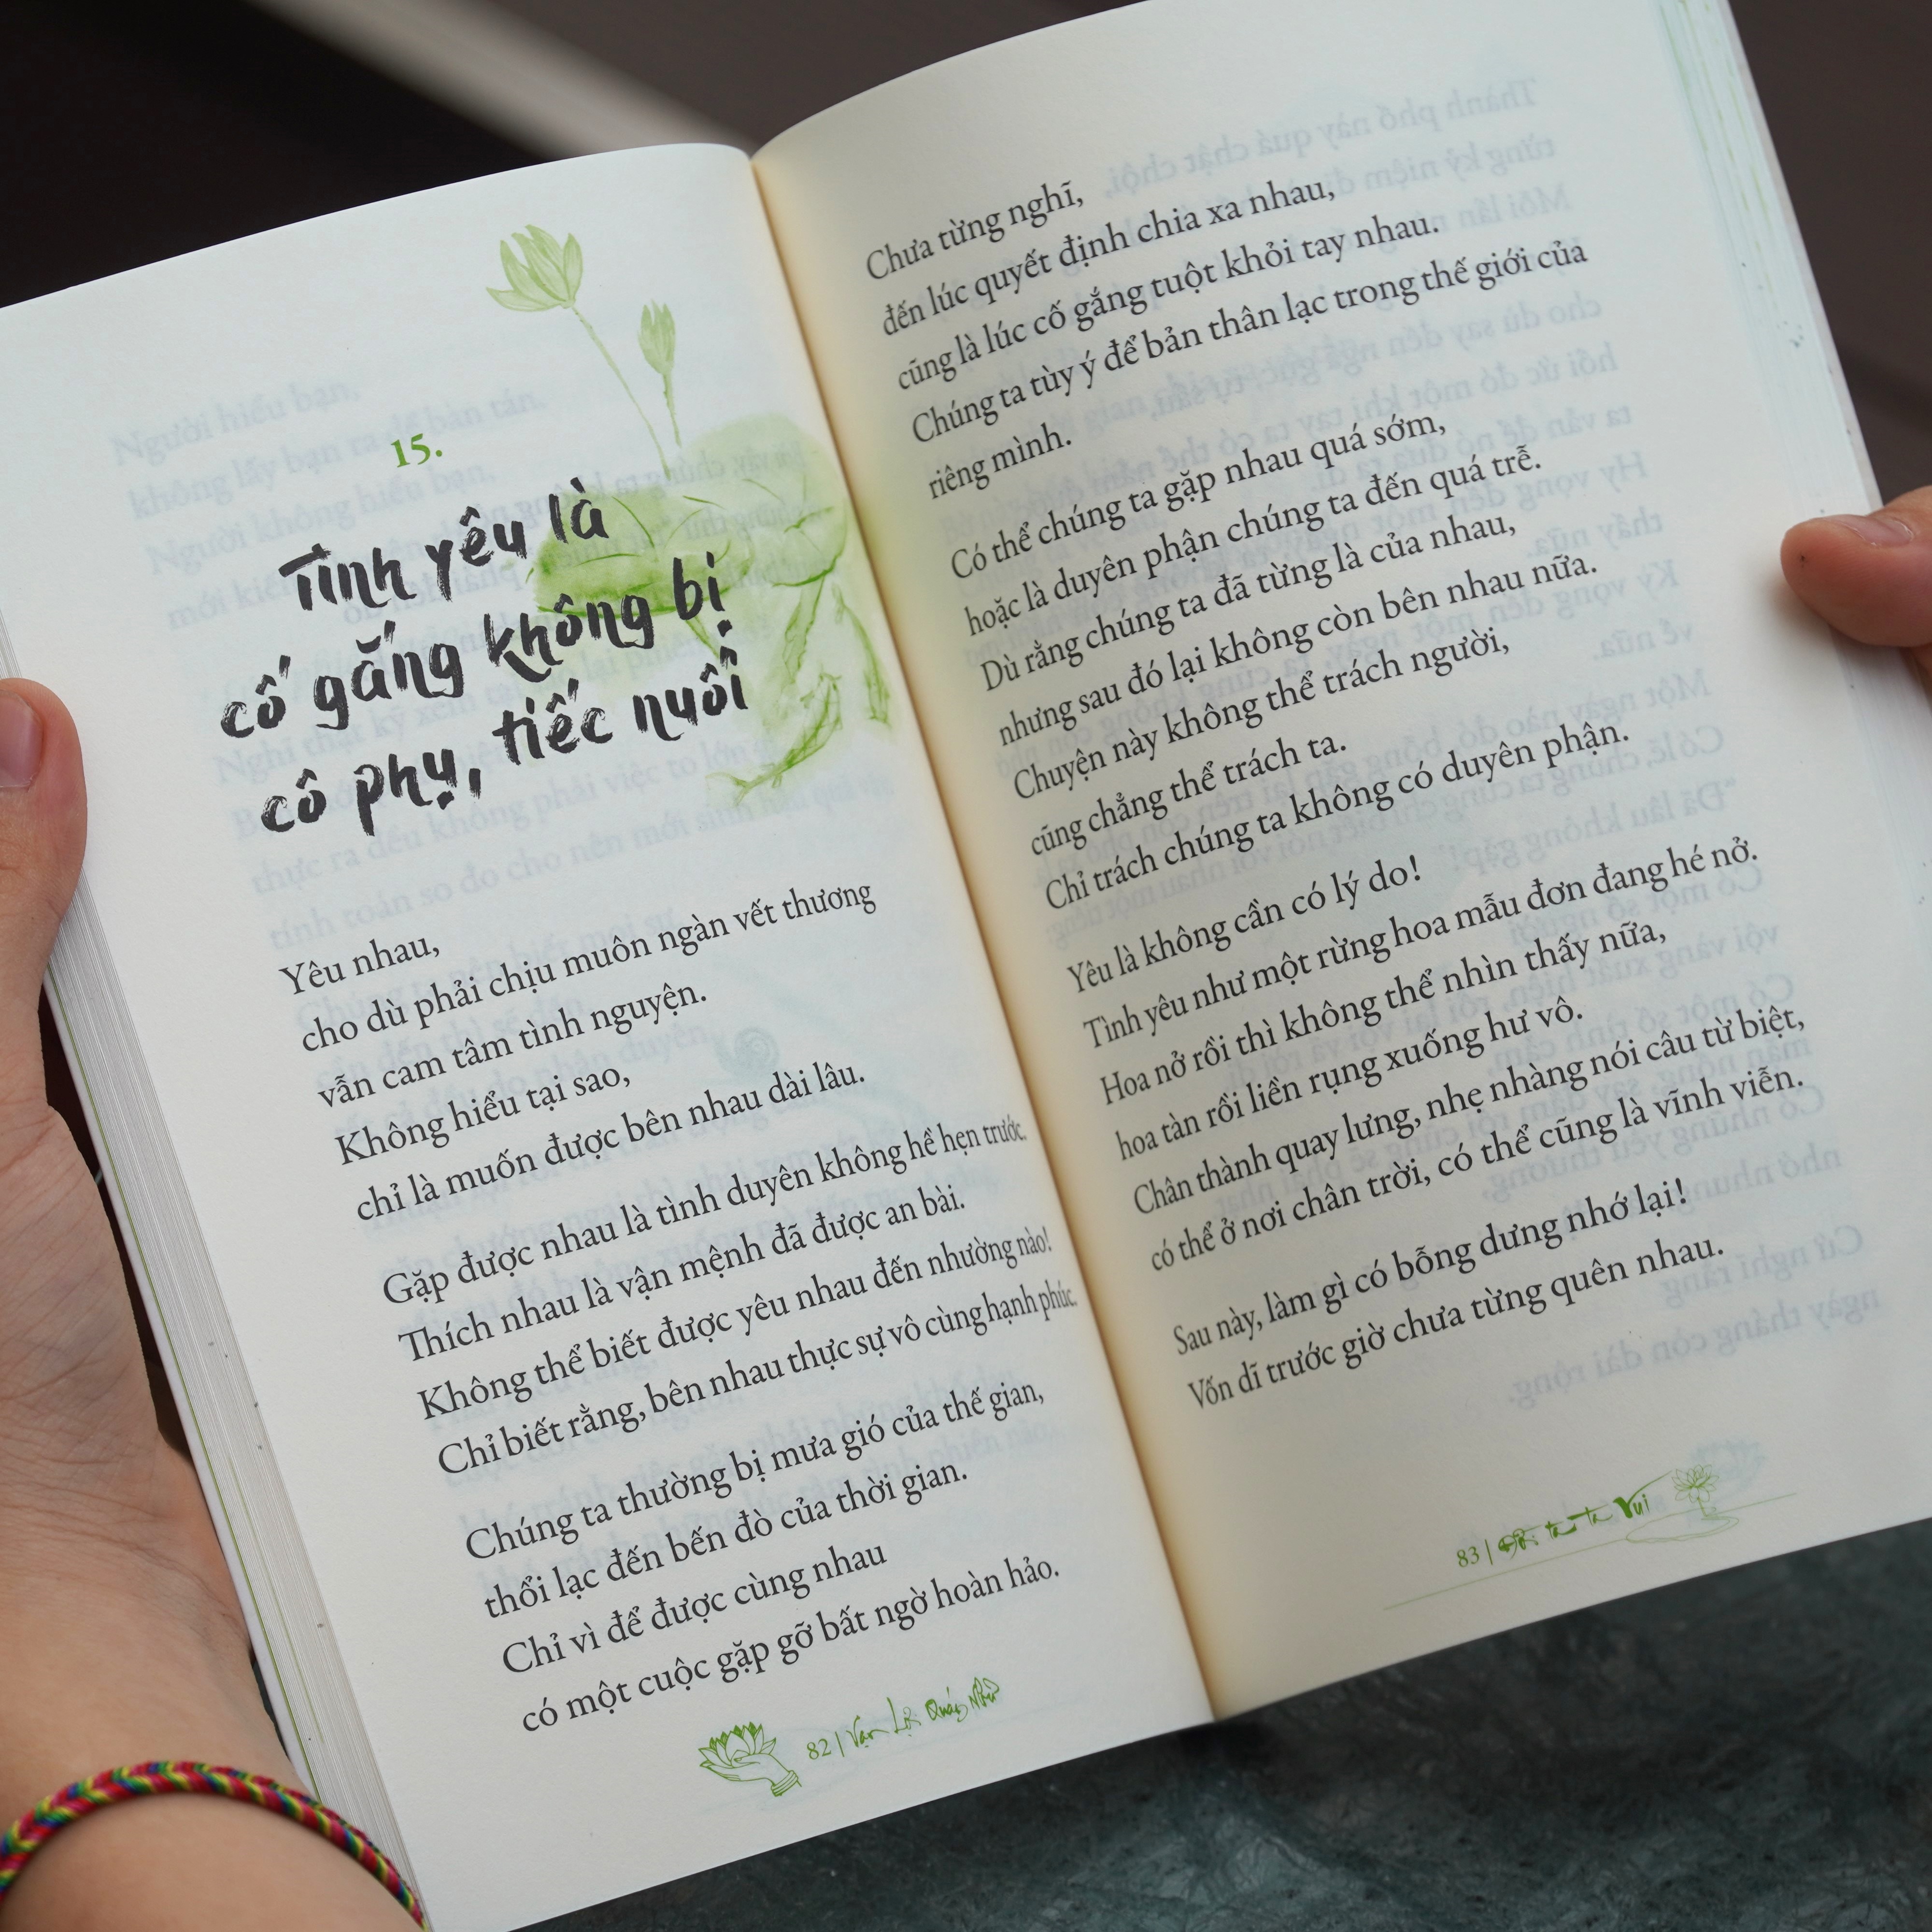 15.
Tình yêu là
cố gắng không bị
cô phụ, tiếc nuối
Yêu nhau,
cho dù phải chịu muôn ngàn vết thương
vẫn cam tâm tình nguyện.
Không hiểu tại sao,
chỉ là muốn được bên nhau dài lâu.
Gặp được nhau là tình duyên không hề hẹn trước.
Thích nhau là vận mệnh đã được an bài.
Không thể biết được yêu nhau đến nhường nào!
Chỉ biết rằng, bên nhau thực sự vô cùng hạnh phúc.
Chúng ta thường bị mưa gió của thế gian,
thổi lạc đến bến đò của thời gian.
Chỉ vì để được cùng nhau
có một cuộc gặp gỡ bất ngờ hoàn hảo.
82 | Vạn Lợi Quang Như
Chưa từng nghĩ,
đến lúc quyết định chia xa nhau,
cũng là lúc cố gắng tuột khỏi tay nhau.
Chúng ta tùy ý để bản thân lạc trong thế giới của
riêng mình.
Có thể chúng ta gặp nhau quá sớm,
hoặc là duyên phận chúng ta đến quá trễ.
Dù rằng chúng ta đã từng là của nhau,
nhưng sau đó lại không còn bên nhau nữa.
Chuyện này không thể trách người,
cũng chẳng thể trách ta.
Chỉ trách chúng ta không có duyên phận.
Yêu là không cần có lý do!
Tình yêu như một rừng hoa mẫu đơn đang hé nở.
Hoa nở rồi thì không thể nhìn thấy nữa,
hoa tàn rồi liền rụng xuống hư vô.
Chân thành quay lưng, nhẹ nhàng nói câu từ biệt,
có thể ở nơi chân trời, có thể cũng là vĩnh viễn.
Sau này, làm gì có bỗng dưng nhớ lại!
Vốn dĩ trước giờ chưa từng quên nhau.
83 | ta Ta Vui